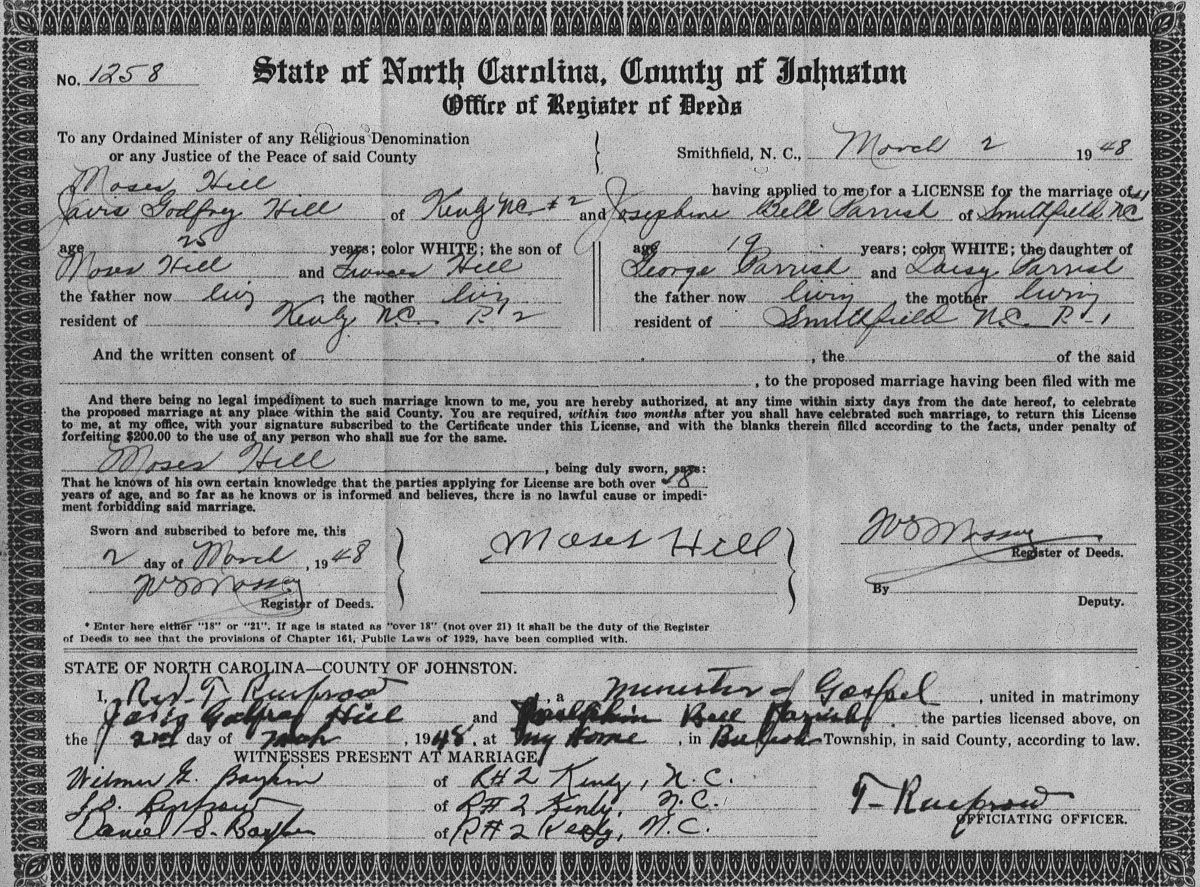 No. 1258
State of North Carolina, County of Johnston
Office of Register of Deeds
To any Ordained Minister of any Religious Denomination
or any Justice of the Peace of said County
Smithfield, N. C., March 2 1948
Moses Hill having applied to me for a LICENSE for the marriage of
Javis Godfrey Hill of Kenly NC #2 and Josephine Bell Parrish of Smithfield NC #1
age 25 years; color WHITE; the son of
Moses Hill and Frances Hill
the father now livig the mother livig
resident of Kenly N.C. R-2
age 19 years; color WHITE; the daughter of
George Parrish and Daisy Parrish
the father now living the mother living
resident of Smithfield N.C. R-1
And the written consent of , the of the said
, to the proposed marriage having been filed with me
And there being no legal impediment to such marriage known to me, you are hereby authorized, at any time within sixty days from the date hereof, to celebrate
the proposed marriage at any place within the said County. You are required, within two months after you shall have celebrated such marriage, to return this License
to me, at my office, with your signature subscribed to the Certificate under this License, and with the blanks therein filled according to the facts, under penalty of
forfeiting $200.00 to the use of any person who shall sue for the same.
Moses Hill , being duly sworn, says:
That he knows of his own certain knowledge that the parties applying for License are both over 18
years of age, and so far as he knows or is informed and believes, there is no lawful cause or impedi-
ment forbidding said marriage.
Sworn and subscribed to before me, this
2 day of March , 1948
Register of Deeds.
Moses Hill
Register of Deeds.
By
Deputy.
* Enter here either "18" or "21". If age is stated as "over 18" (not over 21) it shall be the duty of the Register
of Deeds to see that the provisions of Chapter 161, Public Laws of 1929, have been complied with.
STATE OF NORTH CAROLINA—COUNTY OF JOHNSTON.
I, Rev. T. , a Minister of Gospel , united in matrimony
Javis Godfrey Hill and Bell Parrish the parties licensed above, on
the 2nd day of Mar , 1948, at my Home , in Township, in said County, according to law.
WITNESSES PRESENT AT MARRIAGE
Wilmer G. of R#2 Kenly, N.C.
of R#2 Kenly, N.C.
Daniel S. of R#2 Kenly, N.C.
T-
OFFICIATING OFFICER.